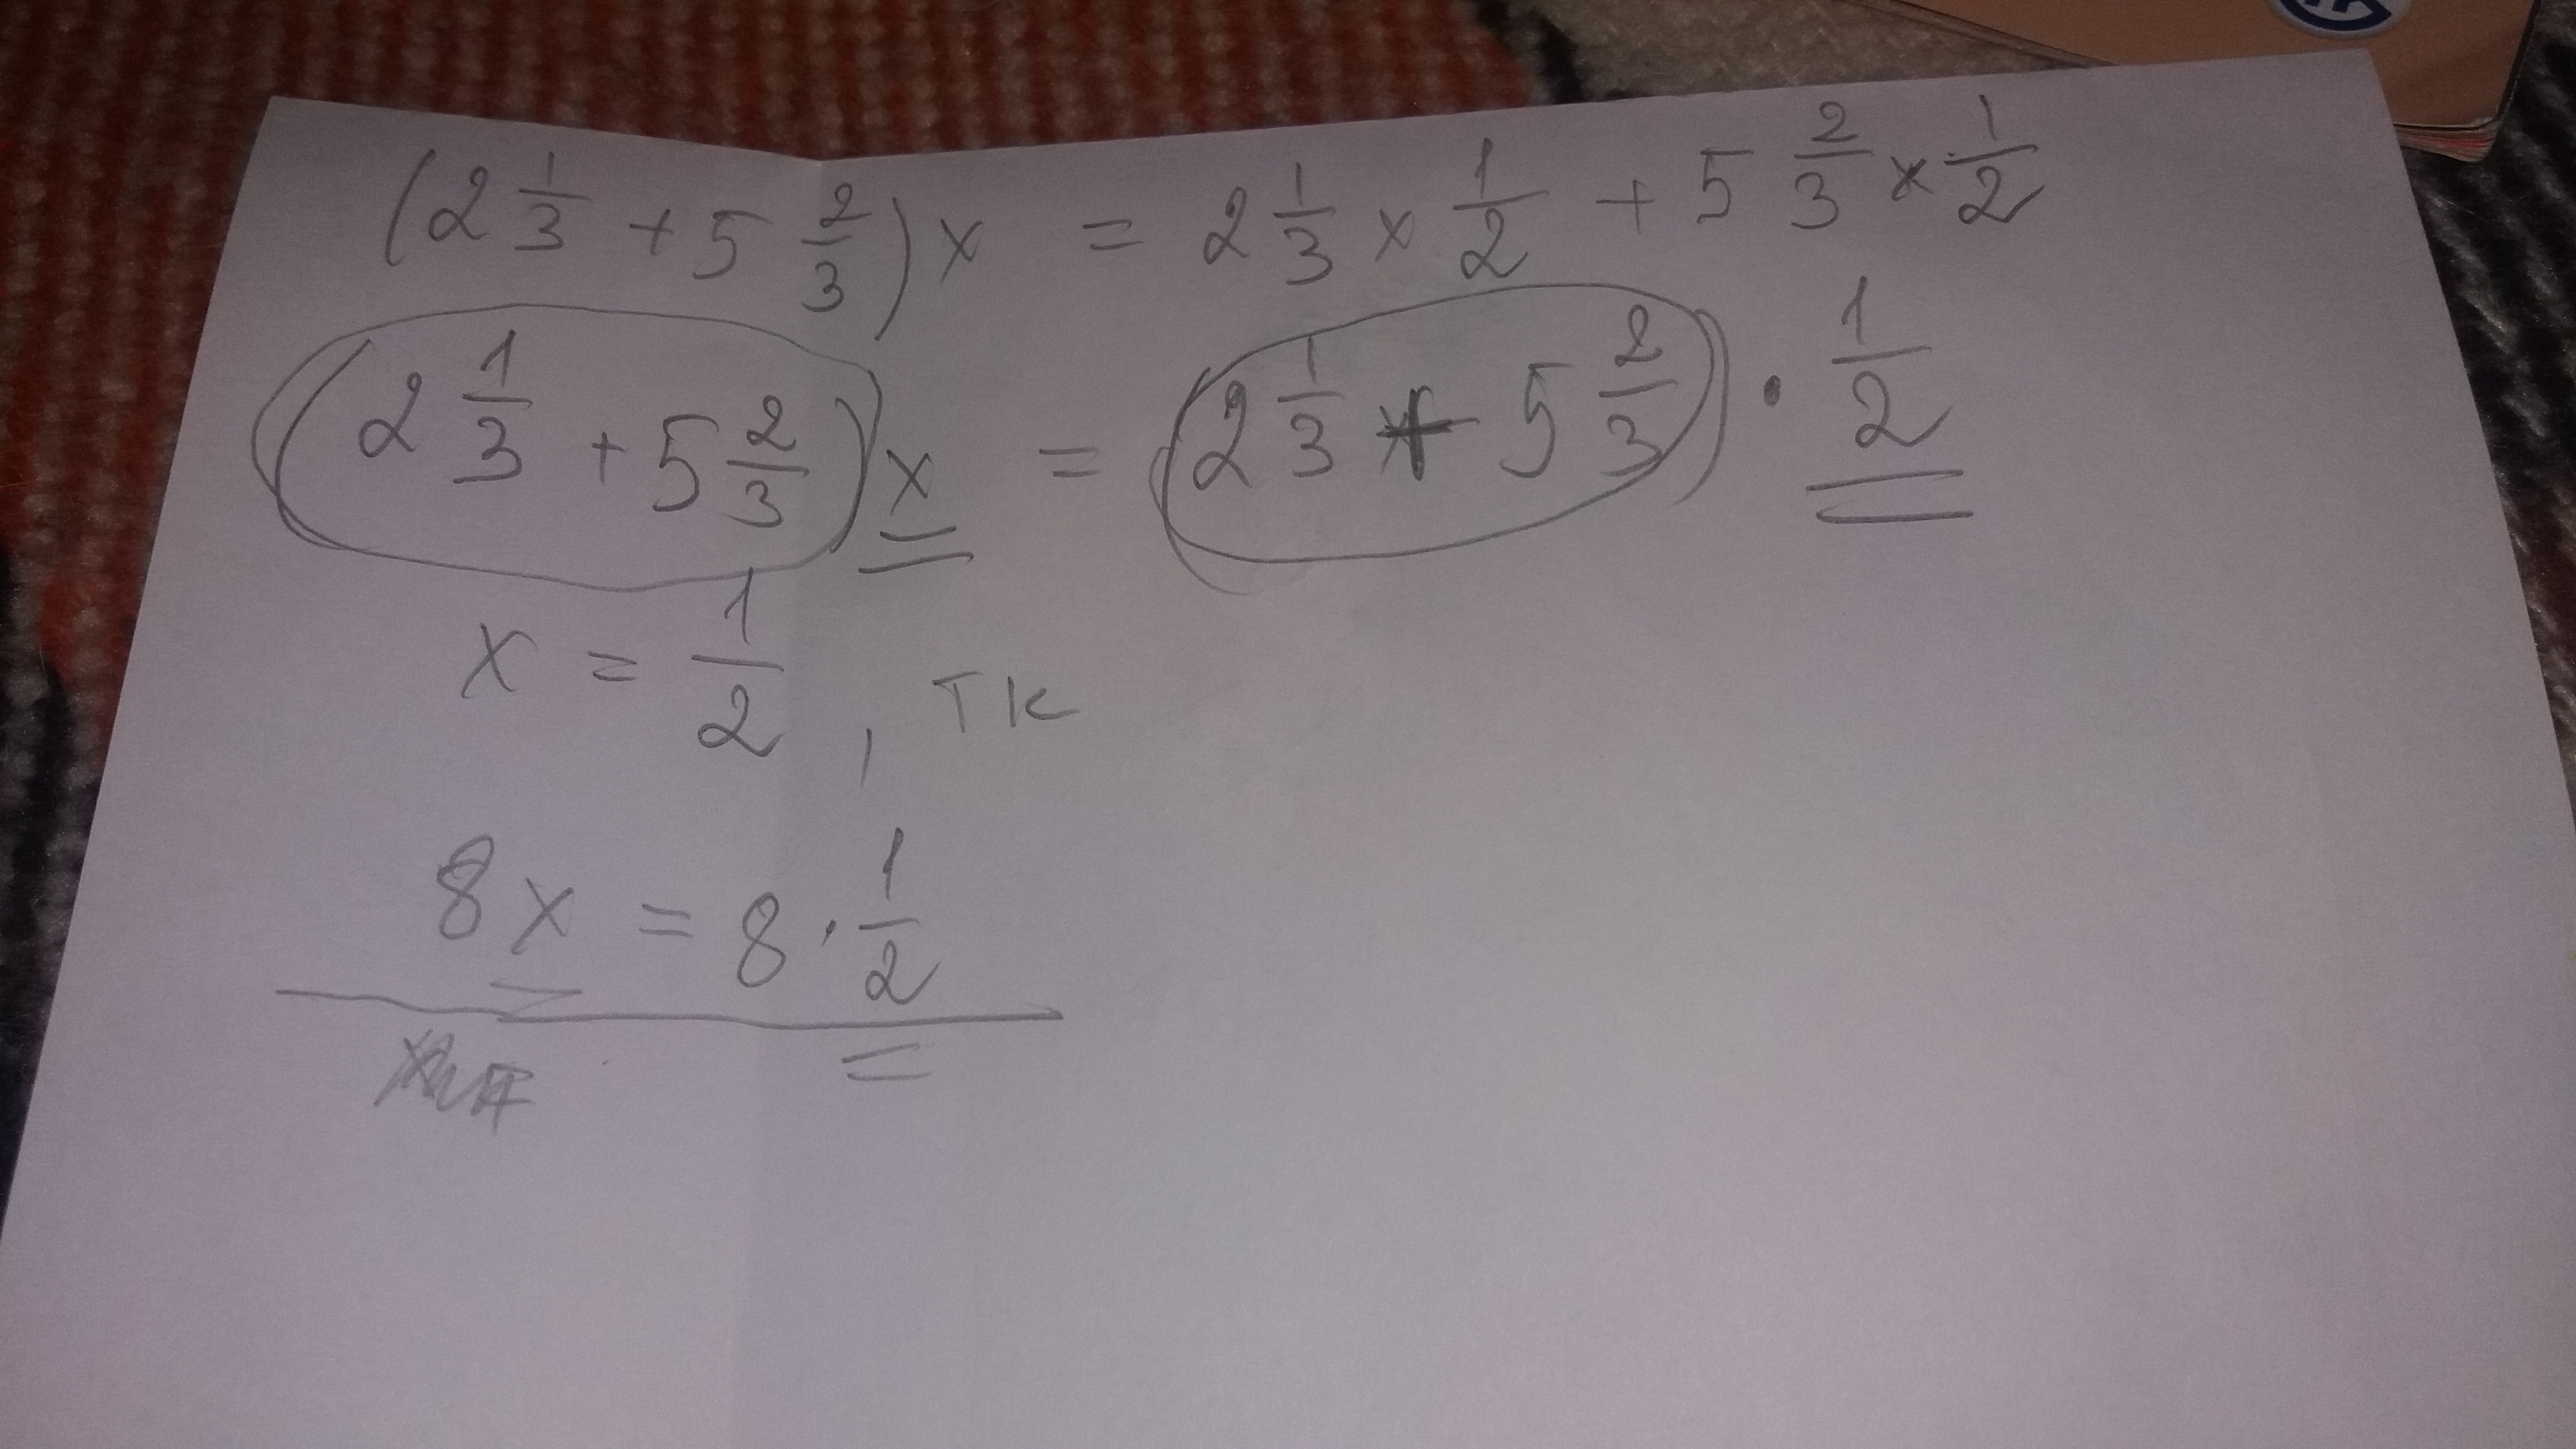 (2 1/3 + 5 2/3) x = 2 1/3 × 1/2 + 5 2/3 × 1/2
(2 1/3 + 5 2/3) x = (2 1/3 + 5 2/3) · 1/2
x = 1/2 , тк
8x = 8 · 1/2